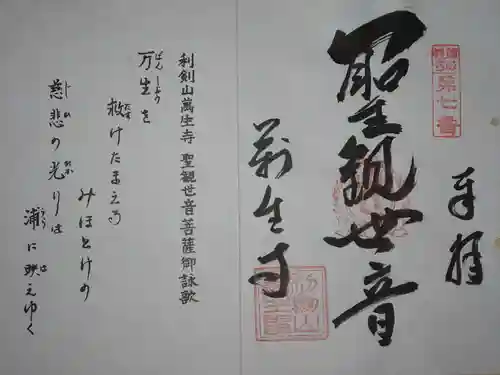 奉拝
聖観世音
萬生寺
第七番
利剣山
利剣山萬生寺 聖観世音菩薩御詠歌
万生を
ばんしょう
救けたまえる
たす
みほとけの
慈悲の光りは
じひ
浦に映えゆく
は